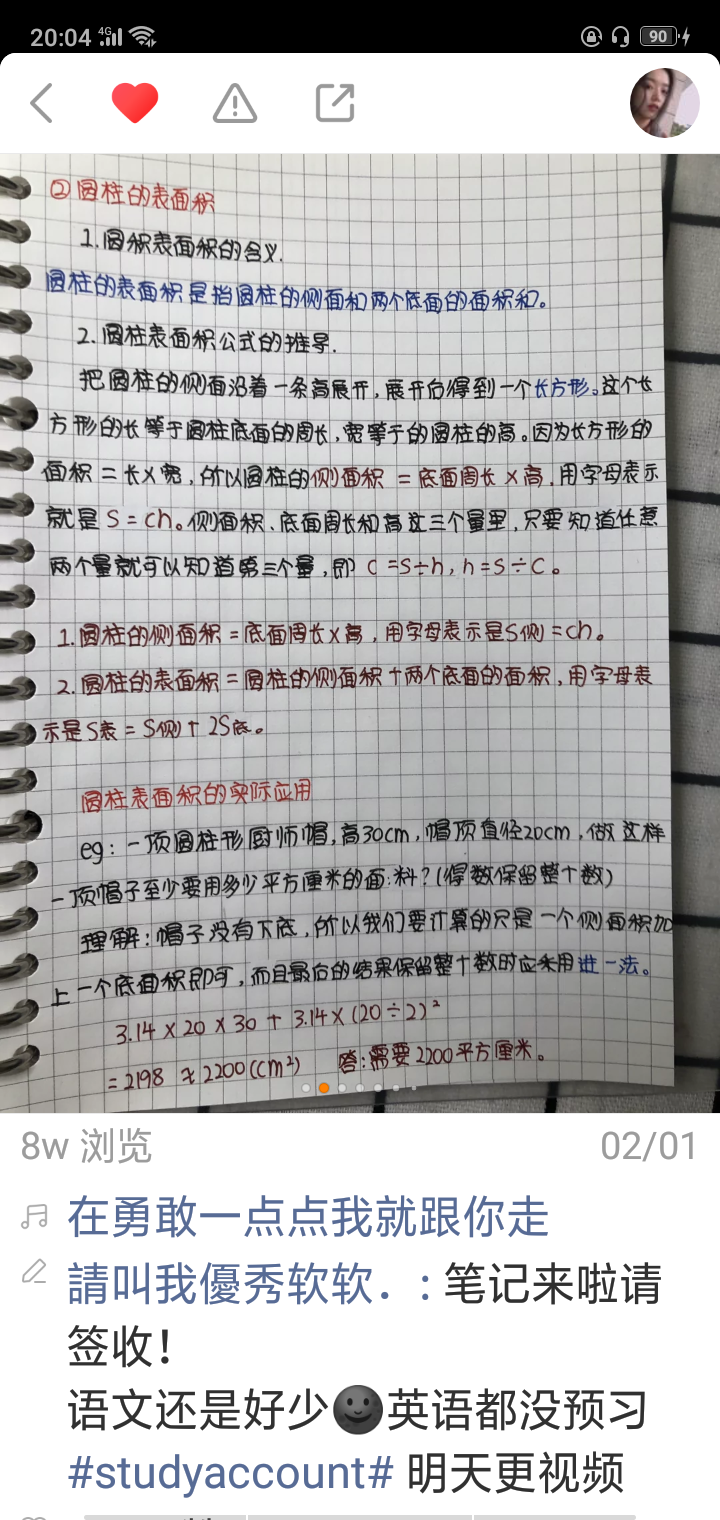 20:04 4G 90
②圆柱的表面积
1.圆积表面积的含义.
圆柱的表面积是指圆柱的侧面和两个底面的面积和。
2.圆柱表面积公式的推导.
把圆柱的侧面沿着一条高展开,展开后得到一个长方形。这个长
方形的长等于圆柱底面的周长,宽等于的圆柱的高。因为长方形的
面积=长×宽,所以圆柱的侧面积=底面周长×高,用字母表示
就是S=ch。侧面积、底面周长和高这三个量里,只要知道任意
两个量就可以知道第三个量,即C=S÷h,h=S÷C。
1.圆柱的侧面积=底面周长×高,用字母表示是S侧=ch。
2.圆柱的表面积=圆柱的侧面积+两个底面的面积,用字母表
示是S表=S侧+2S底。
圆柱表面积的实际应用
eg:一顶圆柱形厨师帽,高30cm,帽顶直径20cm,做这样
一顶帽子至少要用多少平方厘米的面料?(得数保留整十数)
理解:帽子没有下底,所以我们要计算的只是一个侧面积加
上一个底面积即可,而且最后的结果保留整十数时应采用进一法。
3.14×20×30+3.14×(20÷2)²
=2198≈2200(cm²) 答:需要2200平方厘米。
8w 浏览 02/01
在勇敢一点点我就跟你走
請叫我優秀软软．: 笔记来啦请
签收！
语文还是好少🌚英语都没预习
#studyaccount# 明天更视频